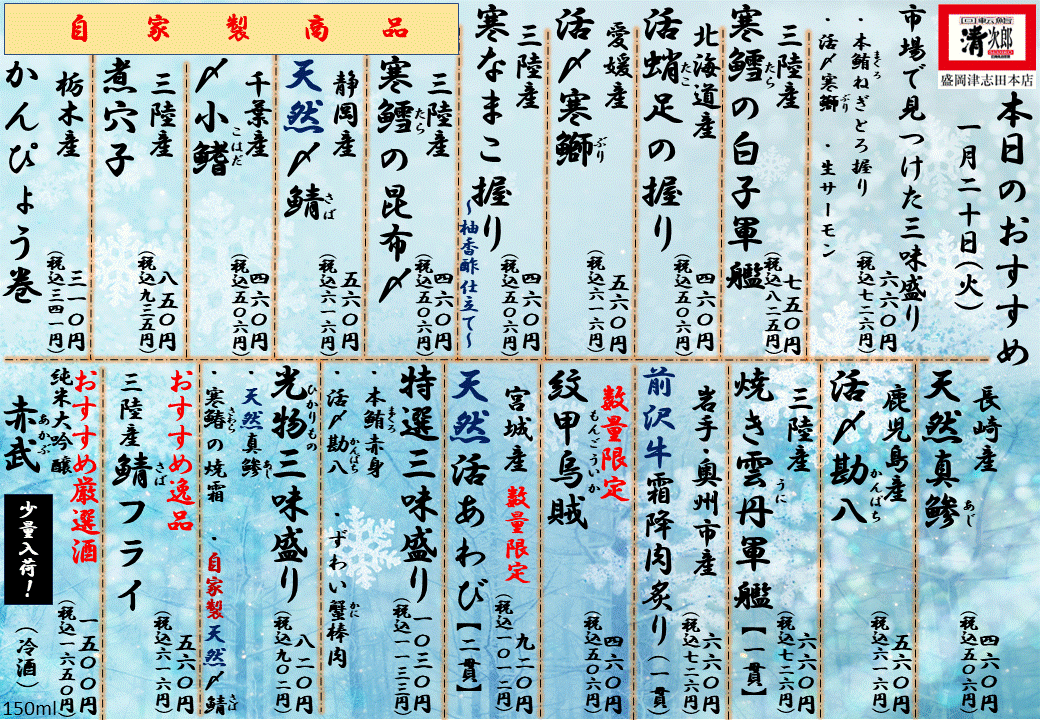 回転鮨
清次郎
盛岡津志田本店
本日のおすすめ
一月二十日(火)
市場で見つけた三味盛り
・本鮪ねぎとろ握り
まぐろ
・活〆寒鰤
ぶり
・生サーモン
六六〇円
(税込七二六円)
三陸産
寒鱈の白子軍艦
たら
七五〇円
(税込八二五円)
北海道産
活蛸足の握り
たこ
四六〇円
(税込五〇六円)
愛媛産
活〆寒鰤
ぶり
五六〇円
(税込六一六円)
三陸産
寒なまこ握り
~柚香酢仕立て~
四六〇円
(税込五〇六円)
自家製商品
三陸産
寒鱈の昆布〆
たら
四六〇円
(税込五〇六円)
静岡産
天然〆鯖
さば
五六〇円
(税込六一六円)
千葉産
〆小鰭
こはだ
四六〇円
(税込五〇六円)
三陸産
煮穴子
八五〇円
(税込九三五円)
栃木産
かんぴょう巻
三一〇円
(税込三四一円)
長崎産
天然真鯵
あじ
四六〇円
(税込五〇六円)
鹿児島産
活〆勘八
かんぱち
五六〇円
(税込六一六円)
三陸産
焼き雲丹軍艦【一貫】
うに
六六〇円
(税込七二六円)
岩手・奥州市産
前沢牛霜降肉炙り(一貫)
六六〇円
(税込七二六円)
数量限定
紋甲烏賊
もんごういか
四六〇円
(税込五〇六円)
宮城産
数量限定
天然活あわび【二貫】
九二〇円
(税込一〇一二円)
特選三味盛り
・本鮪赤身
まぐろ
・活〆勘八
かんぱち
・ずわい蟹棒肉
かに
一〇三〇円
(税込一一三三円)
光物三味盛り
ひかりもの
・天然真鯵
あじ
・寒鰆の焼霜
さわら
・自家製天然〆鯖
さば
八二〇円
(税込九〇二円)
おすすめ逸品
三陸産鯖フライ
さば
五六〇円
(税込六一六円)
おすすめ厳選酒
純米大吟醸
赤武
あかぶ
少量入荷！
一五〇〇円
(税込一六五〇円)
(冷酒)
150ml